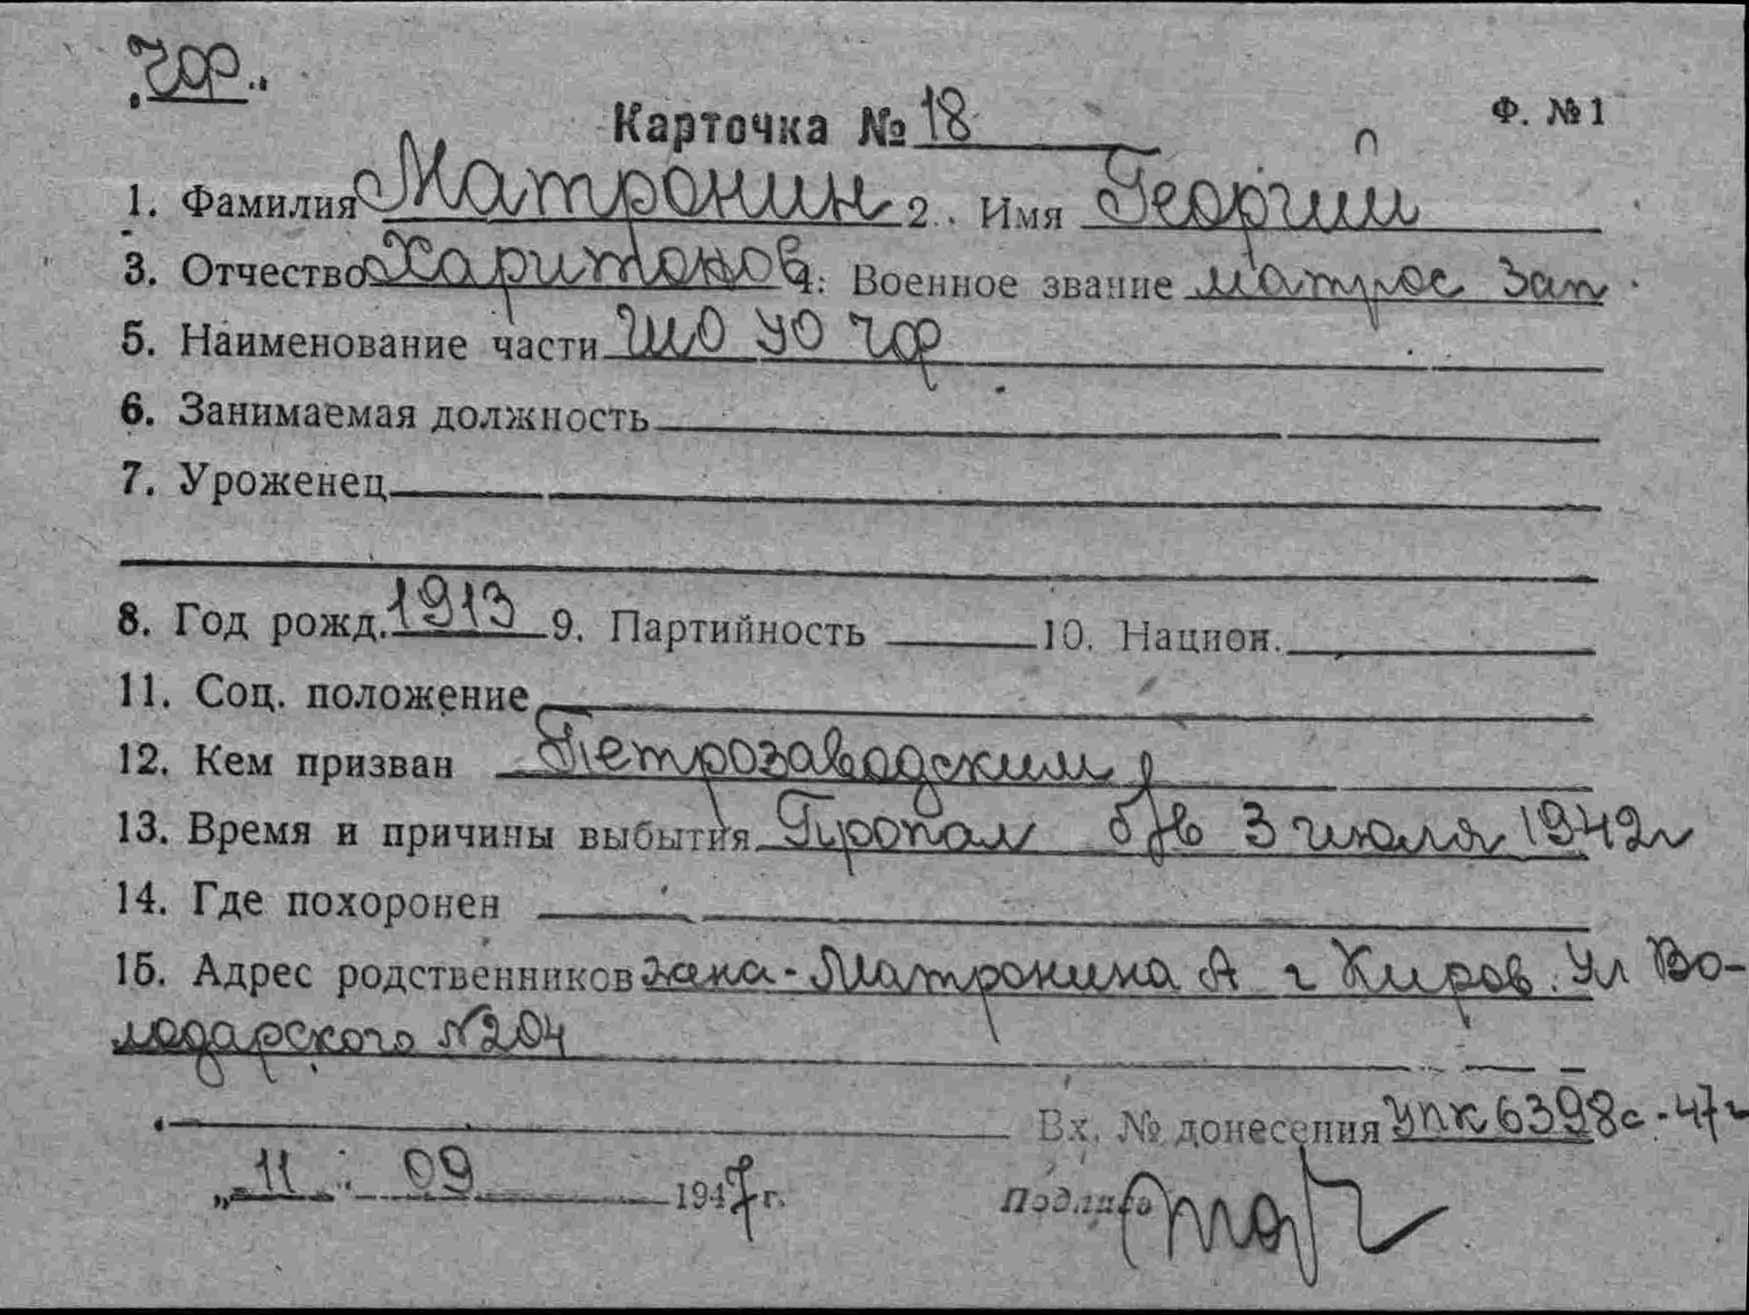 ЧФ
Карточка № 18
Ф. № 1
1. Фамилия Матронин 2. Имя Георгий
3. Отчество Харитонов 4. Военное звание матрос зап
5. Наименование части ШО УО ЧФ
6. Занимаемая должность
7. Уроженец
8. Год рожд. 1913 9. Партийность 10. Национ.
11. Соц. положение
12. Кем призван Петрозаводским
13. Время и причины выбытия Пропал б/в 3 июля 1942г
14. Где похоронен
15. Адрес родственников жена - Матронина А г Киров. Ул Во-
лодарского №204
Вх. № донесения УПК 6398с - 47г
„ 11 “ 09 1947 г.
Подпись